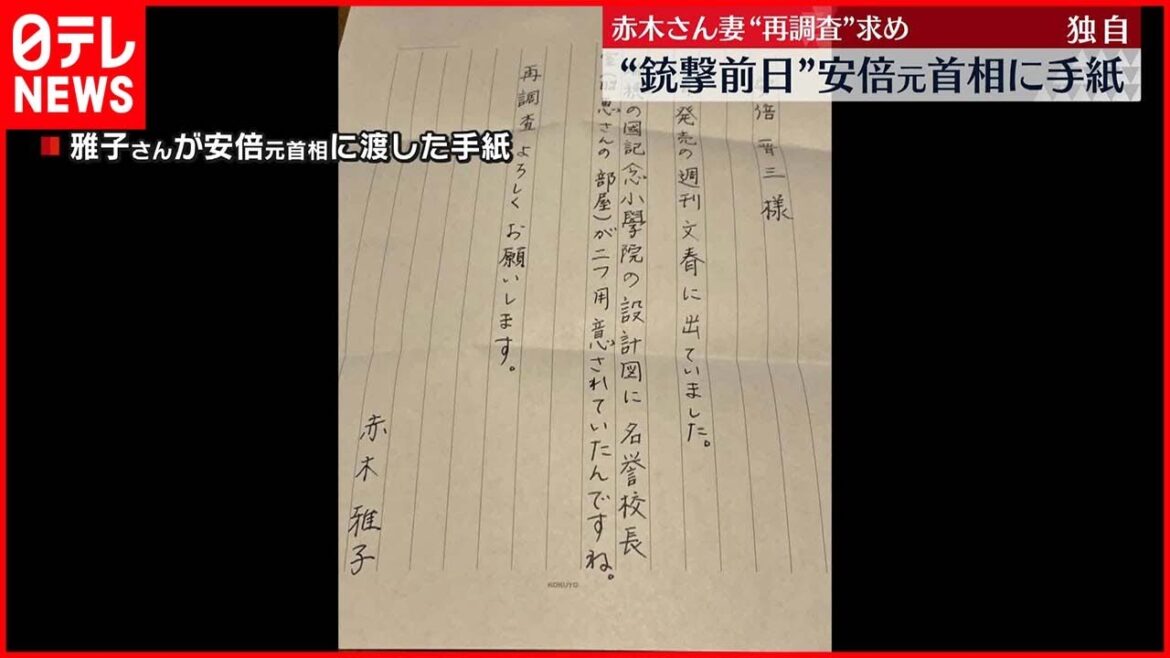 日テレ
NEWS
赤木さん妻“再調査”求め 独自
“銃撃前日”安倍元首相に手紙
雅子さんが安倍元首相に渡した手紙
倍晋三様
発売の週刊文春に出ていました。
の國記念小學院の設計図に名誉校長
恵さんの部屋)が二つ用意されていたんですね。
再調査よろしくお願いします。
赤木雅子
KOKUYO